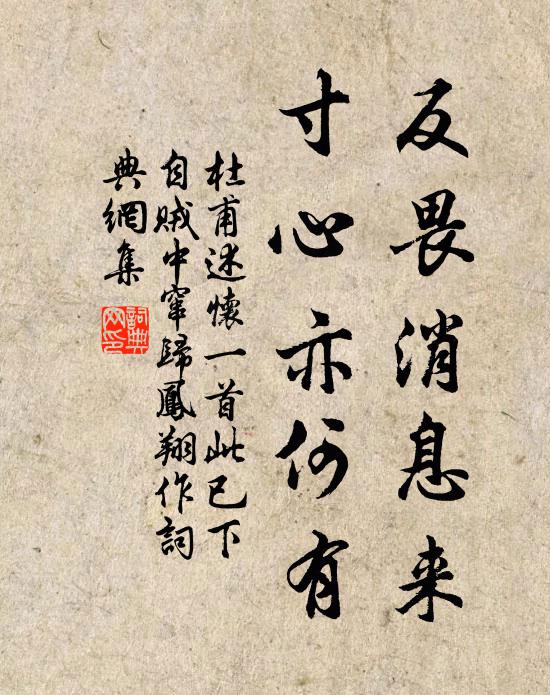 反畏消息来
寸心亦何有
杜甫述懷一首此已下
自賊中窜歸鳳翔作詞
典網集
詞典
网印